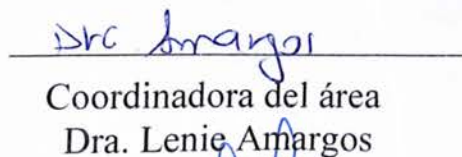 Dra Amargos
Coordinadora del área
Dra. Lenie Amargos